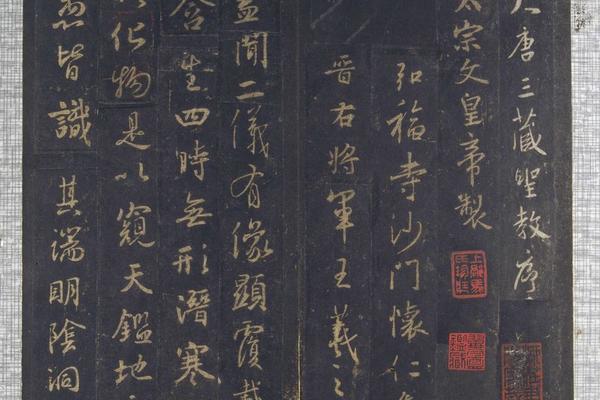 大唐三藏聖教序
太宗文皇帝製
弘福寺沙門懷仁集
晉右將軍王羲之
蓋聞二儀有像顯覆載
含生四時無形潛寒
化物是以窺天鑑地
愚皆識其端明陰洞